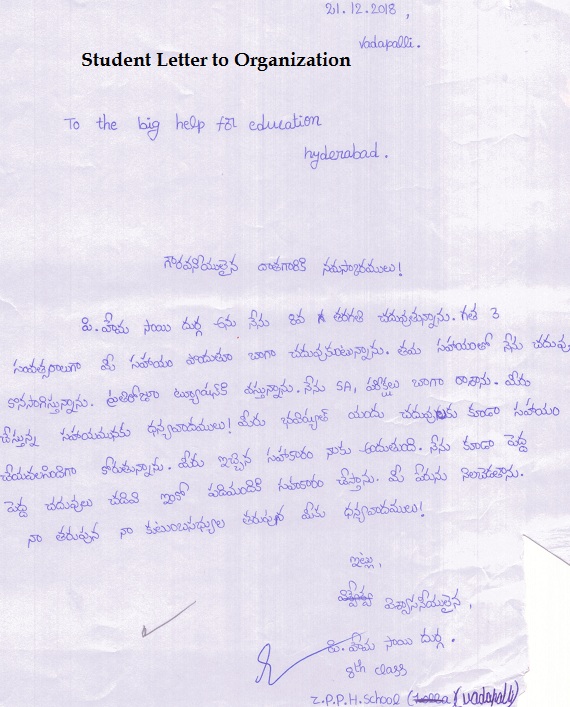 21.12.2018,
Vadapalli.
Student Letter to Organization
To the big help for education
hyderabad.
గౌరవనీయులైన దాతగారికి నమస్కారములు!
పి. హేమ సాయి దుర్గ అను నేను 8వ తరగతి చదువుతున్నాను. గత 3
సంవత్సరాలుగా మీ సహాయం పొందుతూ బాగా చదువుకుంటున్నాను. తమ సహాయంతో నేను చదువు
కొనసాగిస్తున్నాను. ప్రతిరోజూ ట్యూషన్‌కి వస్తున్నాను. నేను SA, పరీక్షలు బాగా రాశాను. మీరు
చేస్తున్న సహాయమునకు ధన్యవాదములు! మీరు భవిష్యత్ యందు చదువులకు కూడా సహాయం
చేయవలసిందిగా కోరుతున్నాను. మీరు ఇచ్చిన సహకారం నాకు అందుతుంది. నేను కూడా పెద్ద
పెద్ద చదువులు చదివి ఇంకో పదిమందికి సహకారం చేస్తాను. మీ పేరును నిలబెడతాను.
నా తరుపున నా కుటుంబసభ్యుల తరుపున మీకు ధన్యవాదములు!
ఇట్లు,
విశ్వాసనీయులైన,
పి. హేమ సాయి దుర్గ.
8th class
Z.P.P.H.School (Vadapalli)